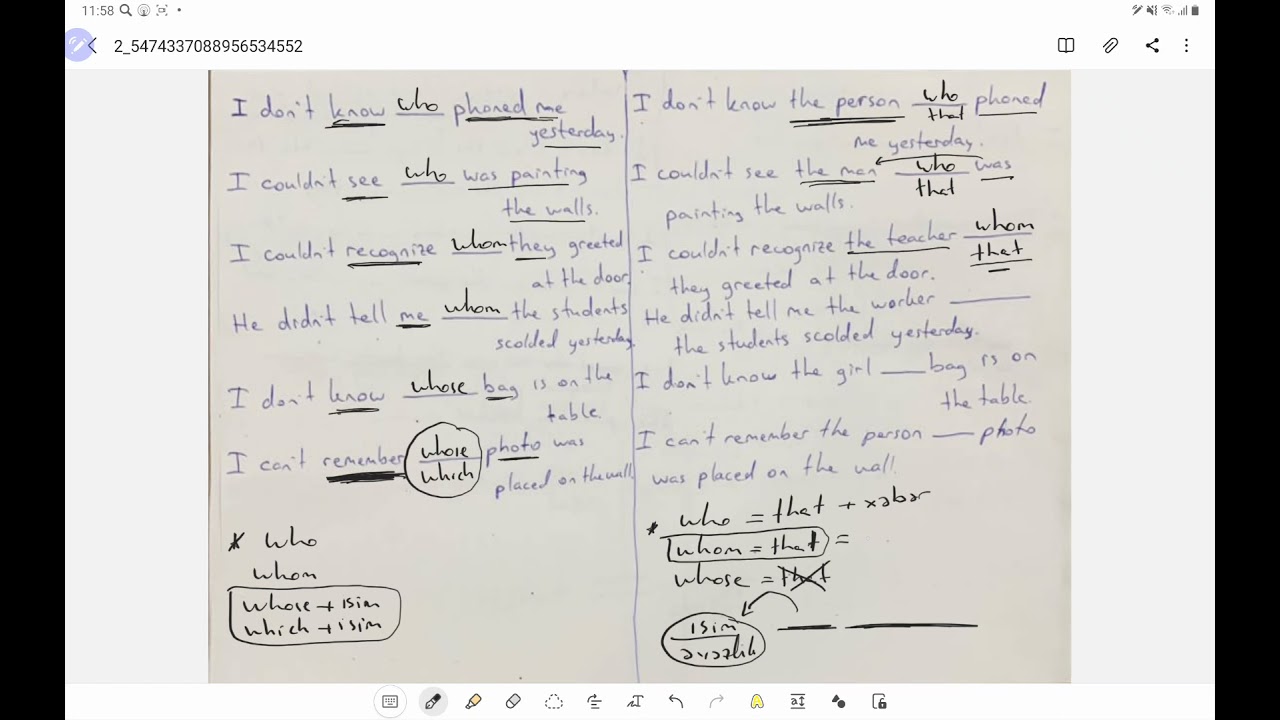 11:58
2_5474337088956534552
I don't know who phoned me
yesterday.
I couldn't see who was painting
the walls.
I couldn't recognize whom they greeted
at the door.
He didn't tell me whom the students
scolded yesterday.
I don't know whose bag is on the
table.
I can't remember whose photo was
which
placed on the wall.
* who
whom
whose + isim
which + isim
I don't know the person who phoned
that
me yesterday.
I couldn't see the man who was
that
painting the walls.
I couldn't recognize the teacher whom
that
they greeted at the door.
He didn't tell me the worker ____
the students scolded yesterday.
I don't know the girl ____ bag is on
the table.
I can't remember the person ____ photo
was placed on the wall.
* who = that + xəbər
whom = that =
whose = that
isim
əvəzlik